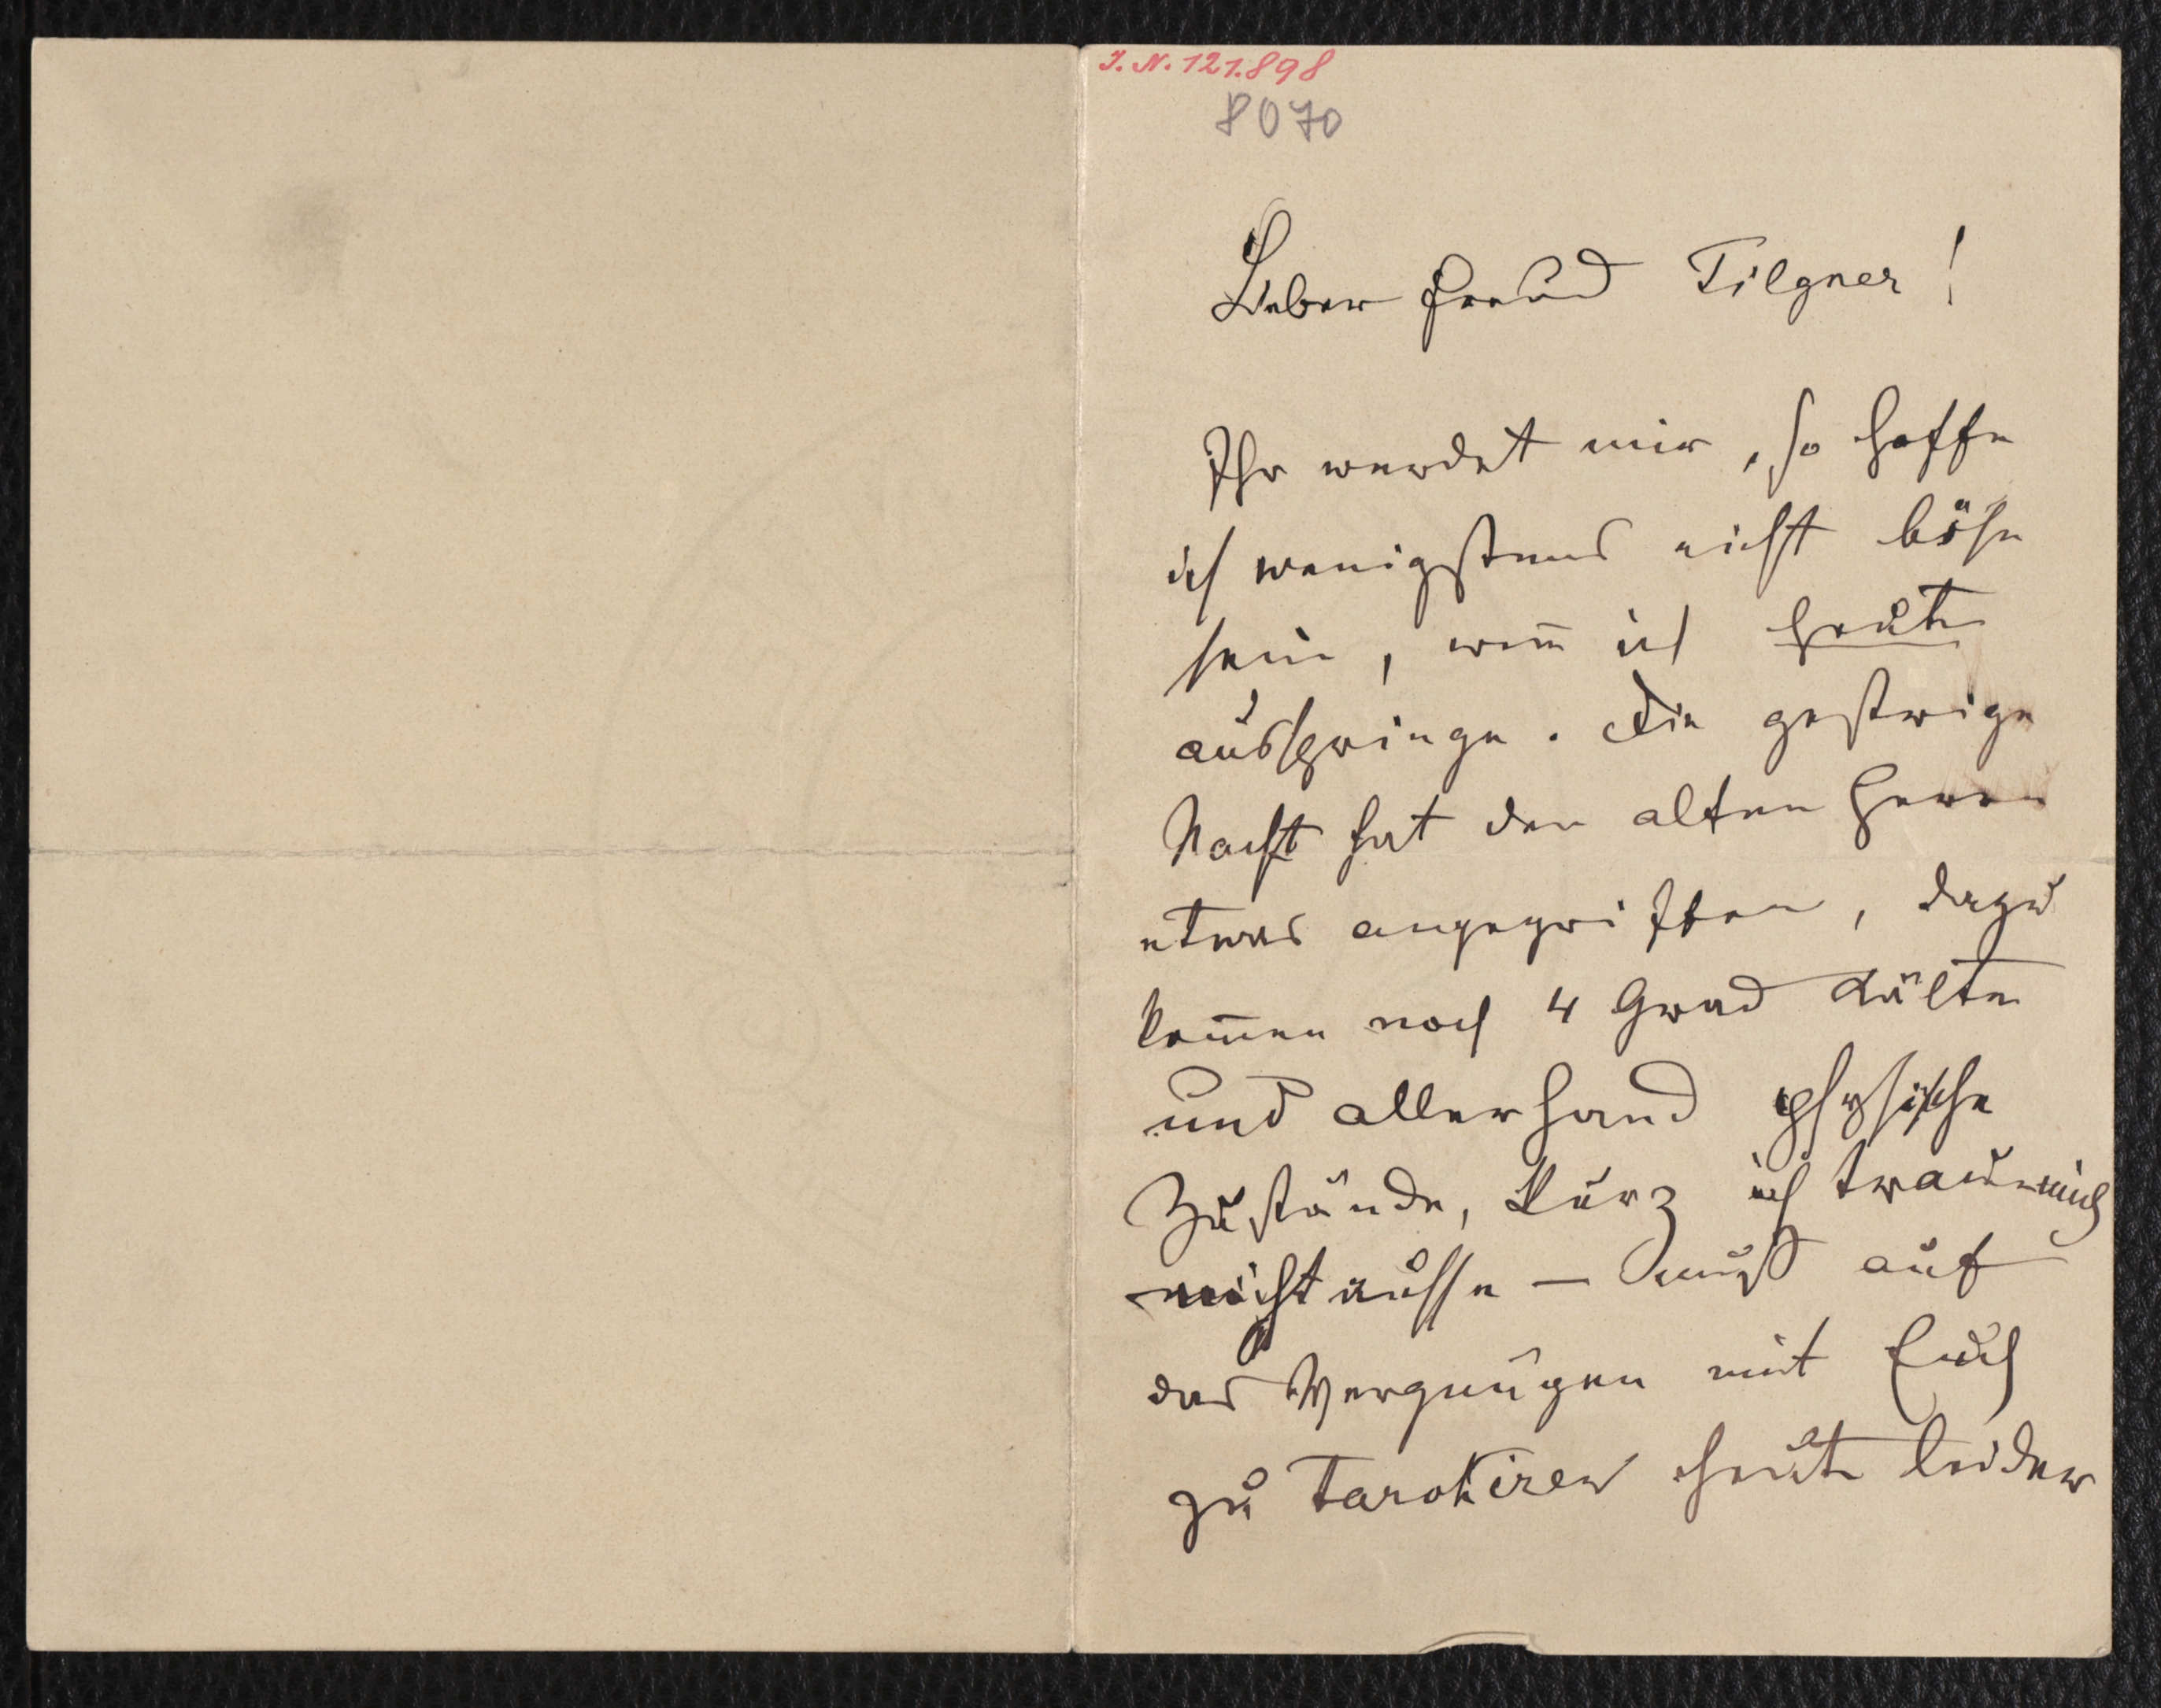 J. N. 121.898
8070
Lieber Freund Tilgner!
Ihr werdet mir, so hoffe
ich wenigstens nicht böse
sein, wen̄ ich heute
ausspringe. Die gestrige
Nacht hat den alten Herrn
etwas angegriffen, dazu
kom̄en noch 4 Grad Kälte
und allerhand physische
Zustände, kurz ich trau mich
nicht ausse – muß auf
das Vergnügen mit Euch
zu Tarokiren heute leider